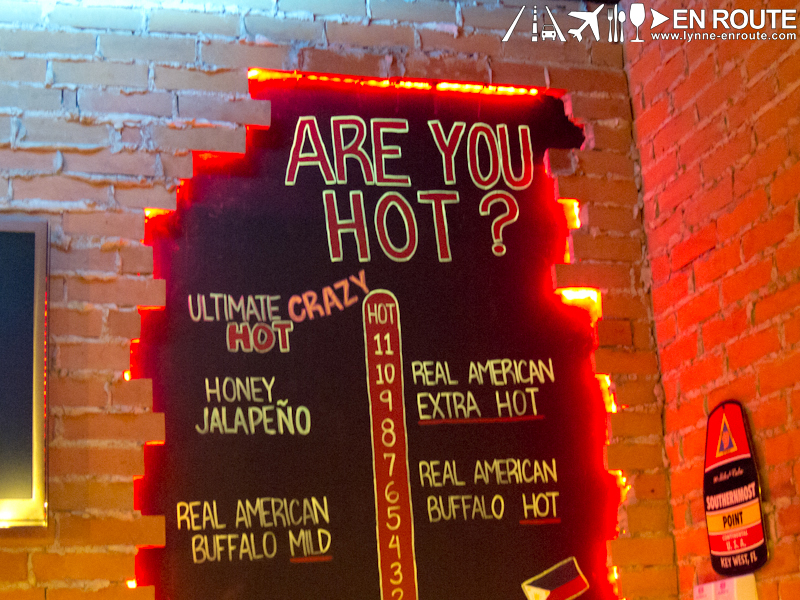 EN ROUTE
www.lynne-enroute.com
ARE YOU
HOT ?
ULTIMATE CRAZY
HOT
HONEY
JALAPEÑO
REAL AMERICAN
BUFFALO MILD
HOT
11
10
9
8
7
6
5
4
3
2
REAL AMERICAN
EXTRA HOT
REAL AMERICAN
BUFFALO HOT
SOUTHERNMOST
POINT
U.S.A.
KEY WEST, FL